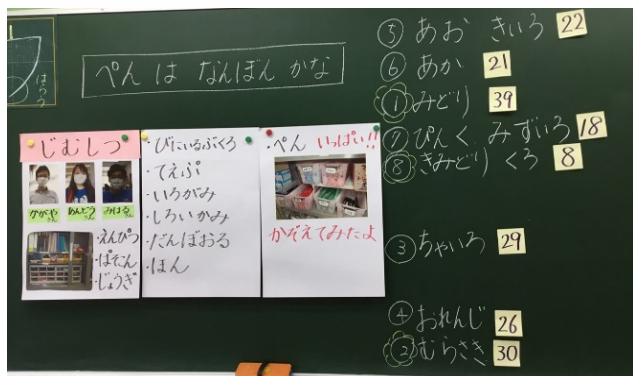 はらう
ぺん は なんぼん かな
じむしつ
かがやさん
あんどうさん
みはるさん
・えんぴつ
・ぱそこん
・じょうぎ
・びにいるぶくろ
・てえぷ
・いろがみ
・しろいかみ
・だんぼおる
・ほん
・ぺん いっぱい!!
かぞえてみたよ
⑤ あお きいろ 22
⑥ あか 21
① みどり 39
⑦ ぴんく みずいろ 18
⑧ きみどり くろ 8
③ ちゃいろ 29
④ おれんじ 26
② むらさき 30